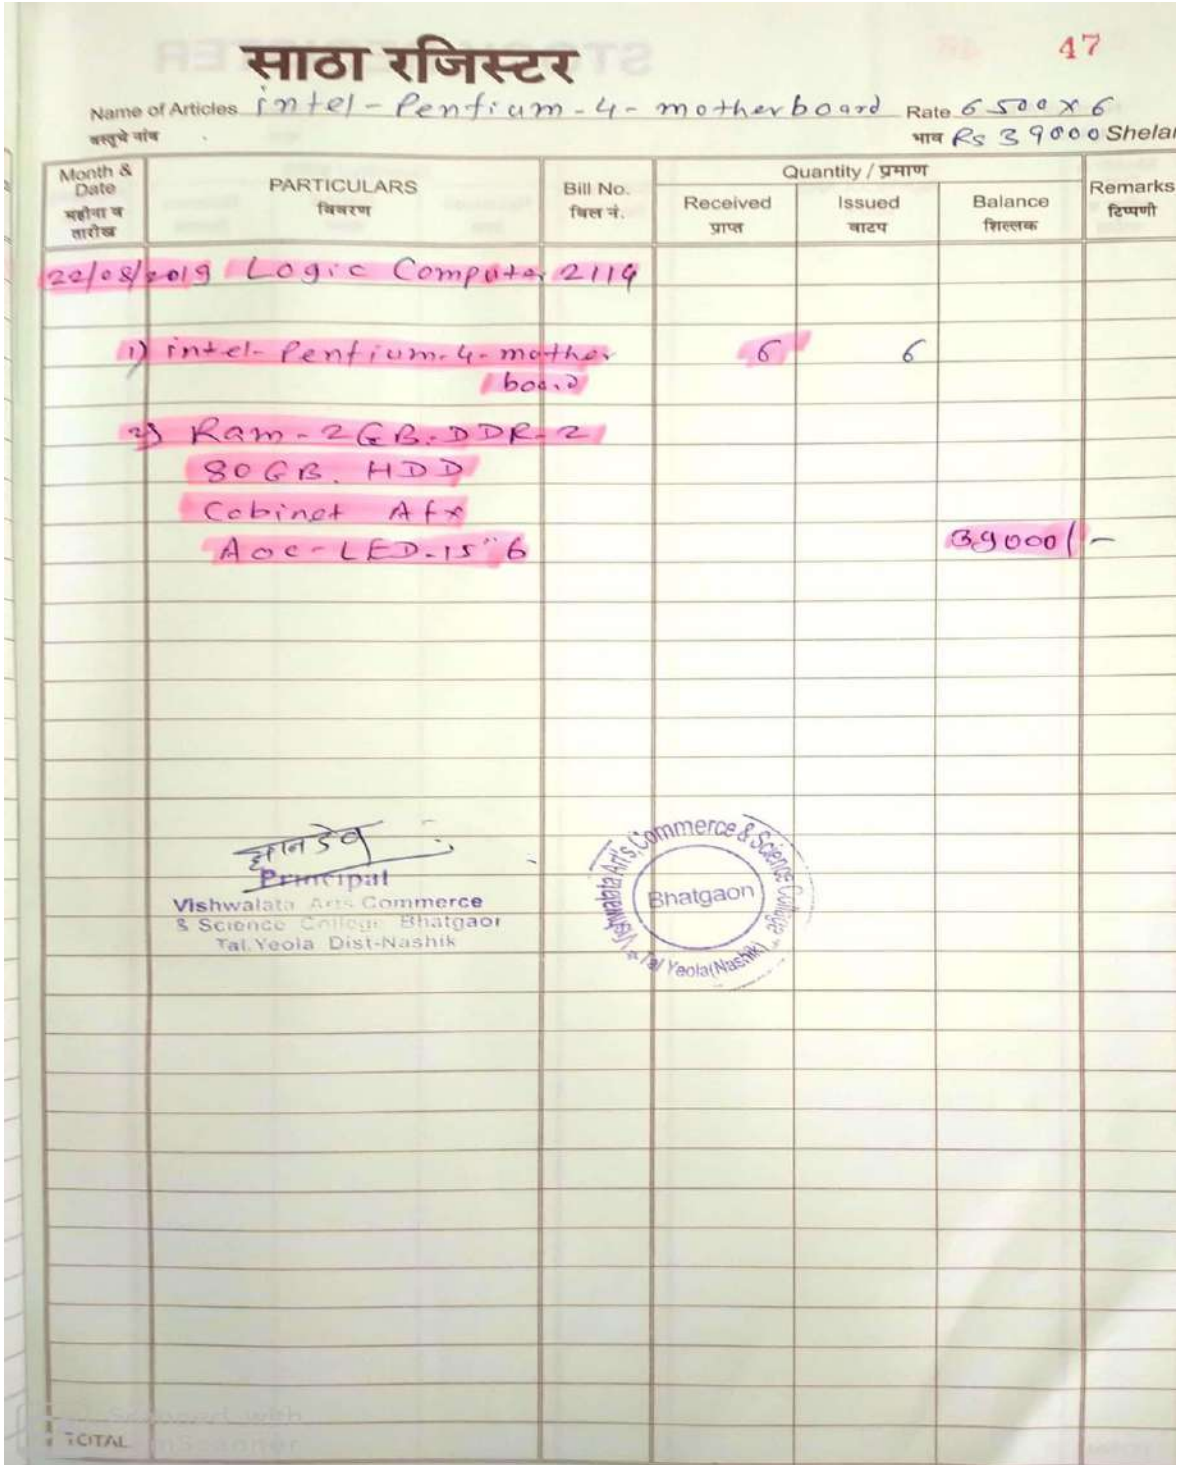 साठा रजिस्टर
47
Name of Articles intel - Pentium - 4 - motherboard Rate 6500 x 6
वस्तुचे नांव भाव Rs 39000 Shelar
Month & Date PARTICULARS Bill No. Quantity / प्रमाण Remarks
महीना व तारीख विवरण बिल नं. Received Issued Balance टिप्पणी
प्राप्त वाटप शिल्लक
22/08/2019 Logic Computer 2114
1) intel - Pentium - 4 - mother 6 6
board
2) Ram - 2GB. DDR - 2
80GB. HDD
Cabinet Atx
Aoc - LED - 15" 6 39000/-
ज्ञानदेव
Principal
Vishwalata Arts Commerce
& Science College Bhatgaon
Tal. Yeola Dist-Nashik
Vishwalata Art's, Commerce & Science College
Bhatgaon
Tal Yeola (Nashik)
TOTAL